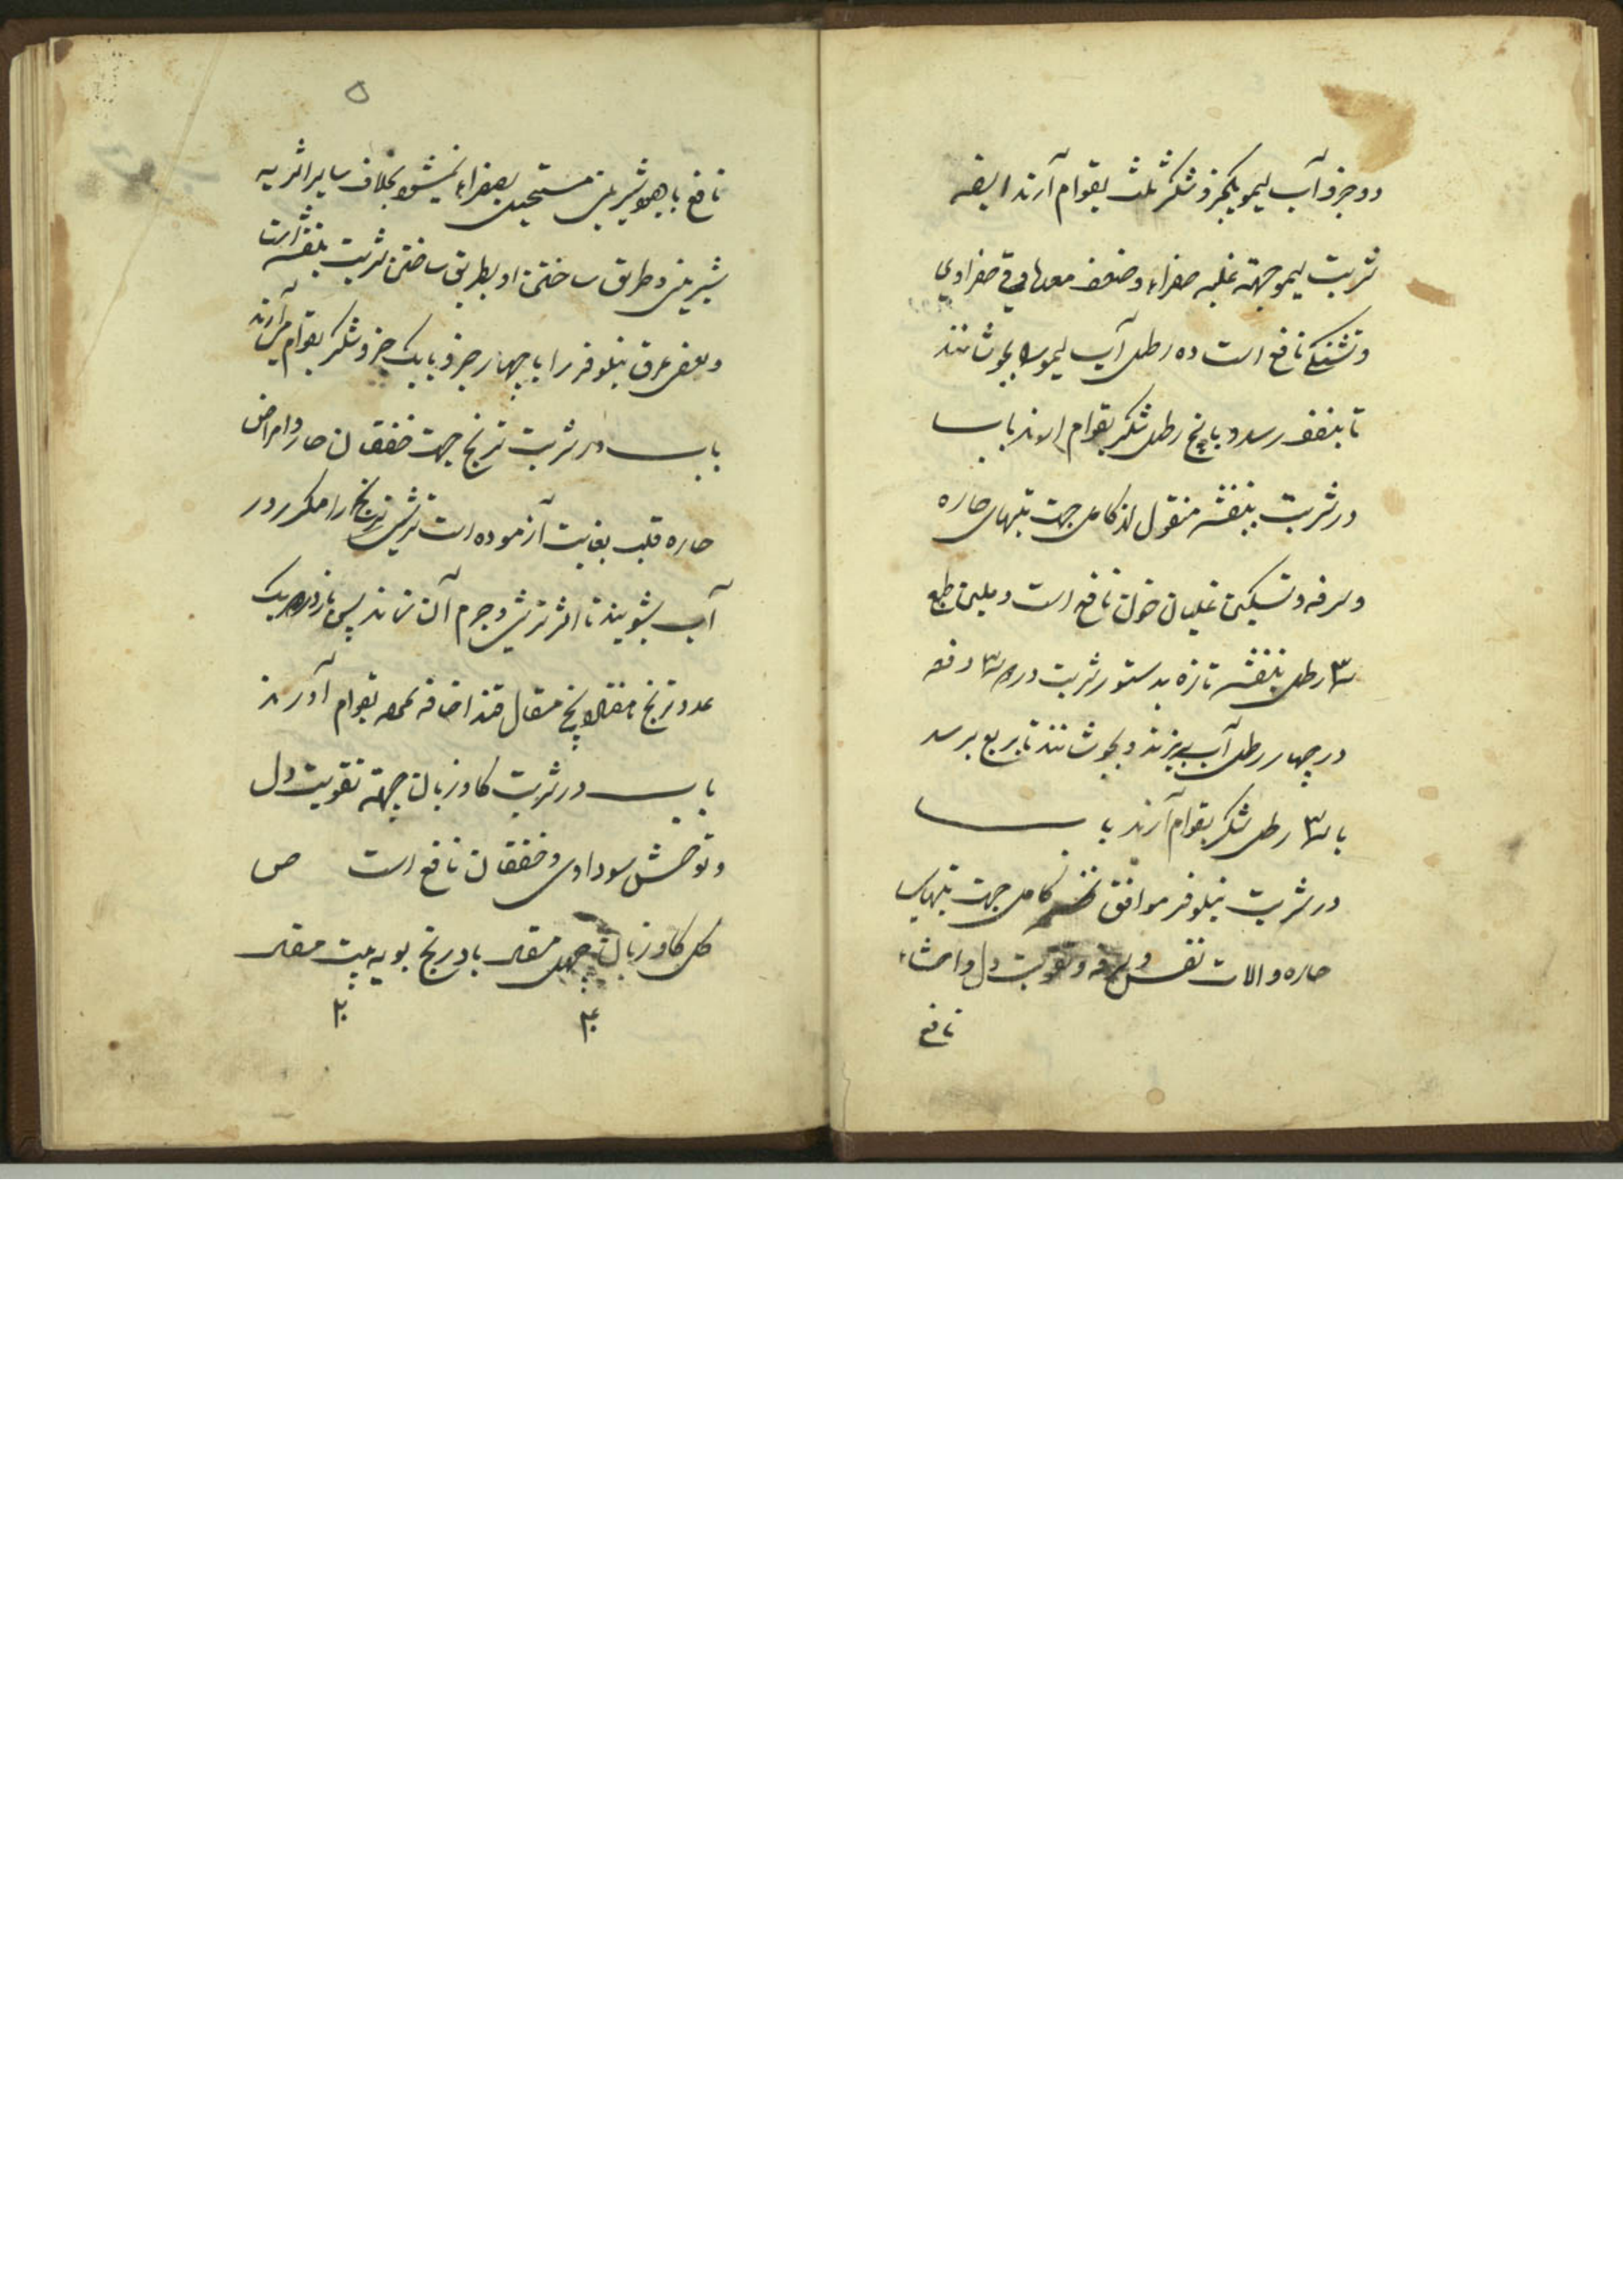 دو جزو آب لیمو یکجزو شکر ثلث بقوام آرند ایضه
شربت لیمو جهته غلبه صفراء و ضعف معدها و قی صفراوی
و تشنکی نافع است ده رطل آب لیمو را بجوشانند
تا بنصف رسد و با پنج رطل شکر بقوام ارند باب
در شربت بنفشه منقول از کامل جهت تبهای حاره
و سرفه و تسکین غلیان خون نافع است و ملین طبع
۳ رطل بنفشه تازه بدستور شربت ورد ۳ دفعه
در چهار رطل آب بریزند و بجوشانند تا بربع برسد
با ۳ رطل شکر بقوام آرند باب
در شربت نیلوفر موافق نسخه کامل جهت تبهای
حاره و الات نفس و سرفه و تقویت دل و احشاء
نافع
۵
نافع با همه شیرینی مستحیل بصفراء نمیشود بخلاف سایر اشربه
شیرینی و طریق ساختن او بطریق ساختن شربت بنفشه است
و بعضی عرق نیلوفر را با چهار جزو با یک جزو شکر بقوام می آرند
باب در شربت ترنج جهت خفقان حار و امراض
حاره قلب بغایت آزموده است ترشی ترنج را مکرر در
آب بشویند تا اثر ترشی و جرم آن نماند پس از هر یک
عدد ترنج مثقال پنج مثقال قند اضافه نموده بقوام آورند
باب در شربت کاوزبان جهته تقویت دل
و توحش سوداوی و خفقان نافع است ص
کل کاوزبان چهل مثقال بادرنج بویه بیست مثقال
۴۰ ۲۰